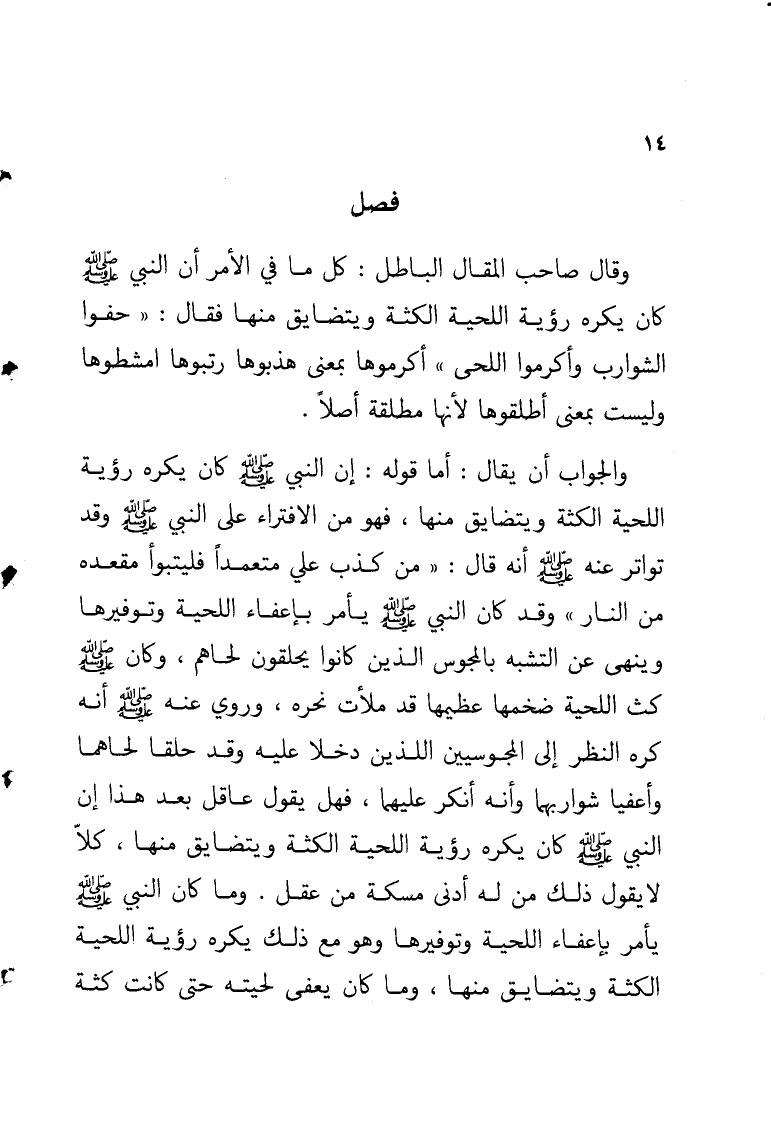 ١٤
فصل
وقال صاحب المقال الباطل : كل ما في الأمر أن النبي ﷺ
كان يكره رؤية اللحية الكثة ويتضايق منها فقال : « حفوا
الشوارب وأكرموا اللحى » أكرموها بمعنى هذبوها رتبوها امشطوها
وليست بمعنى أطلقوها لأنها مطلقة أصلاً .
والجواب أن يقال : أما قوله : إن النبي ﷺ كان يكره رؤية
اللحية الكثة ويتضايق منها ، فهو من الافتراء على النبي ﷺ وقد
تواتر عنه ﷺ أنه قال : « من كذب علي متعمداً فليتبوأ مقعده
من النار » وقد كان النبي ﷺ يأمر بإعفاء اللحية وتوفيرها
وينهى عن التشبه بالمجوس الذين كانوا يحلقون لحاهم ، وكان ﷺ
كث اللحية ضخمها عظيمها قد ملأت نحره ، وروي عنه ﷺ أنه
كره النظر إلى المجوسيين اللذين دخلا عليه وقد حلقا لحاهما
وأعفيا شواربهما وأنه أنكر عليهما ، فهل يقول عاقل بعد هذا إن
النبي ﷺ كان يكره رؤية اللحية الكثة ويتضايق منها ، كلاّ
لايقول ذلك من له أدنى مسكة من عقل . وما كان النبي ﷺ
يأمر بإعفاء اللحية وتوفيرها وهو مع ذلك يكره رؤية اللحية
الكثة ويتضايق منها ، وما كان يعفى لحيته حتى كانت كثة